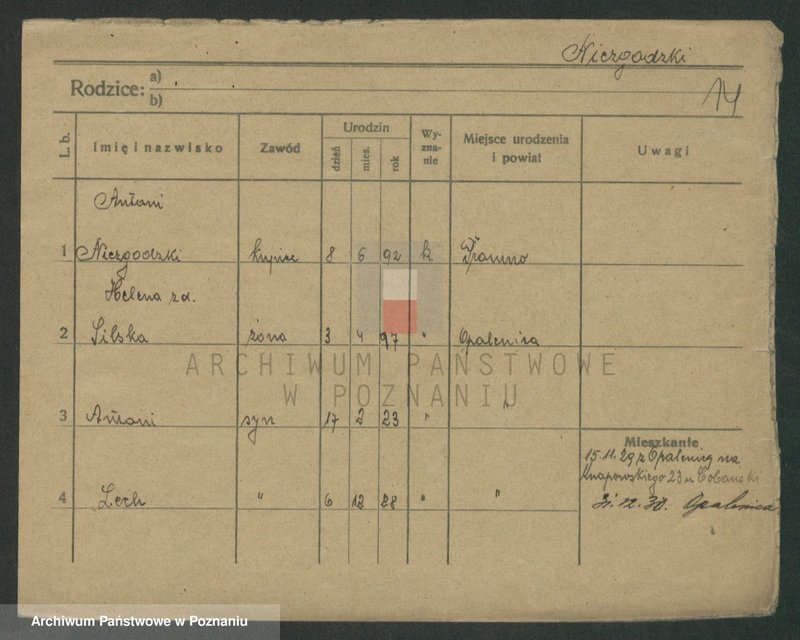 Niezgodzki
Rodzice: a)
b)
14
L. b. Imię i nazwisko Zawód Urodzin Wy-zna-nie Miejsce urodzenia i powiat Uwagi
dzień mies. rok
Antoni
1 Niezgodzki kupiec 8 6 92 k.
Helena zd.
2 Silska żona 3 4 97 " Opalenica
ARCHIWUM PAŃSTWOWE
W POZNANIU
3 Antoni syn 17 2 23 " "
Mieszkanie
15.11.29 z Opalenicy na
Knapowskiego 23 u
4 Lech " 6 12 28 " "
31.12.30. Opalenica
Archiwum Państwowe w Poznaniu